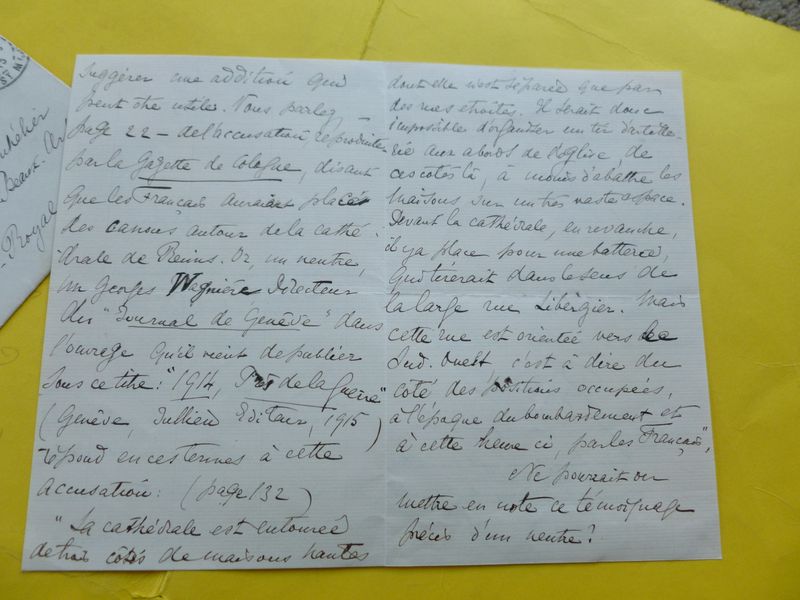 ntelier
Beaux-Ar
Royal
suggérer une addition qui
peut être utile. Vous parlez –
page 22 – de l'accusation reproduite
par la Gazette de Cologne, disant
que les Français auraient placés
des canons autour de la cathé-
drale de Reims. Or, un neutre,
M. Georges Wagnière Directeur
du "Journal de Genève" dans
l'ouvrage qu'il vient de publier
sous ce titre: "1914, Près de la Guerre"
(Genève, Jullien Editeur, 1915)
répond en ces termes à cette
accusation: (page 132)
"La cathédrale est entourée
de trois côtés de maisons hautes
dont elle n'est séparée que par
des rues étroites. Il serait donc
impossible d'organiser un tir d'artille-
rie aux abords de l'église, de
ces côtés là, à moins d'abattre les
maisons sur un très vaste espace.
Devant la cathédrale, en revanche,
il y a place pour une batterie,
qui tirerait dans le sens de
la large rue Libergier. Mais
cette rue est orientée vers le
Sud. Ouest c'est à dire du
côté des positions occupées,
à l'époque du bombardement et
à cette heure ci, par les Français",
Ne pourrait on
mettre en note ce témoignage
précis d'un neutre?